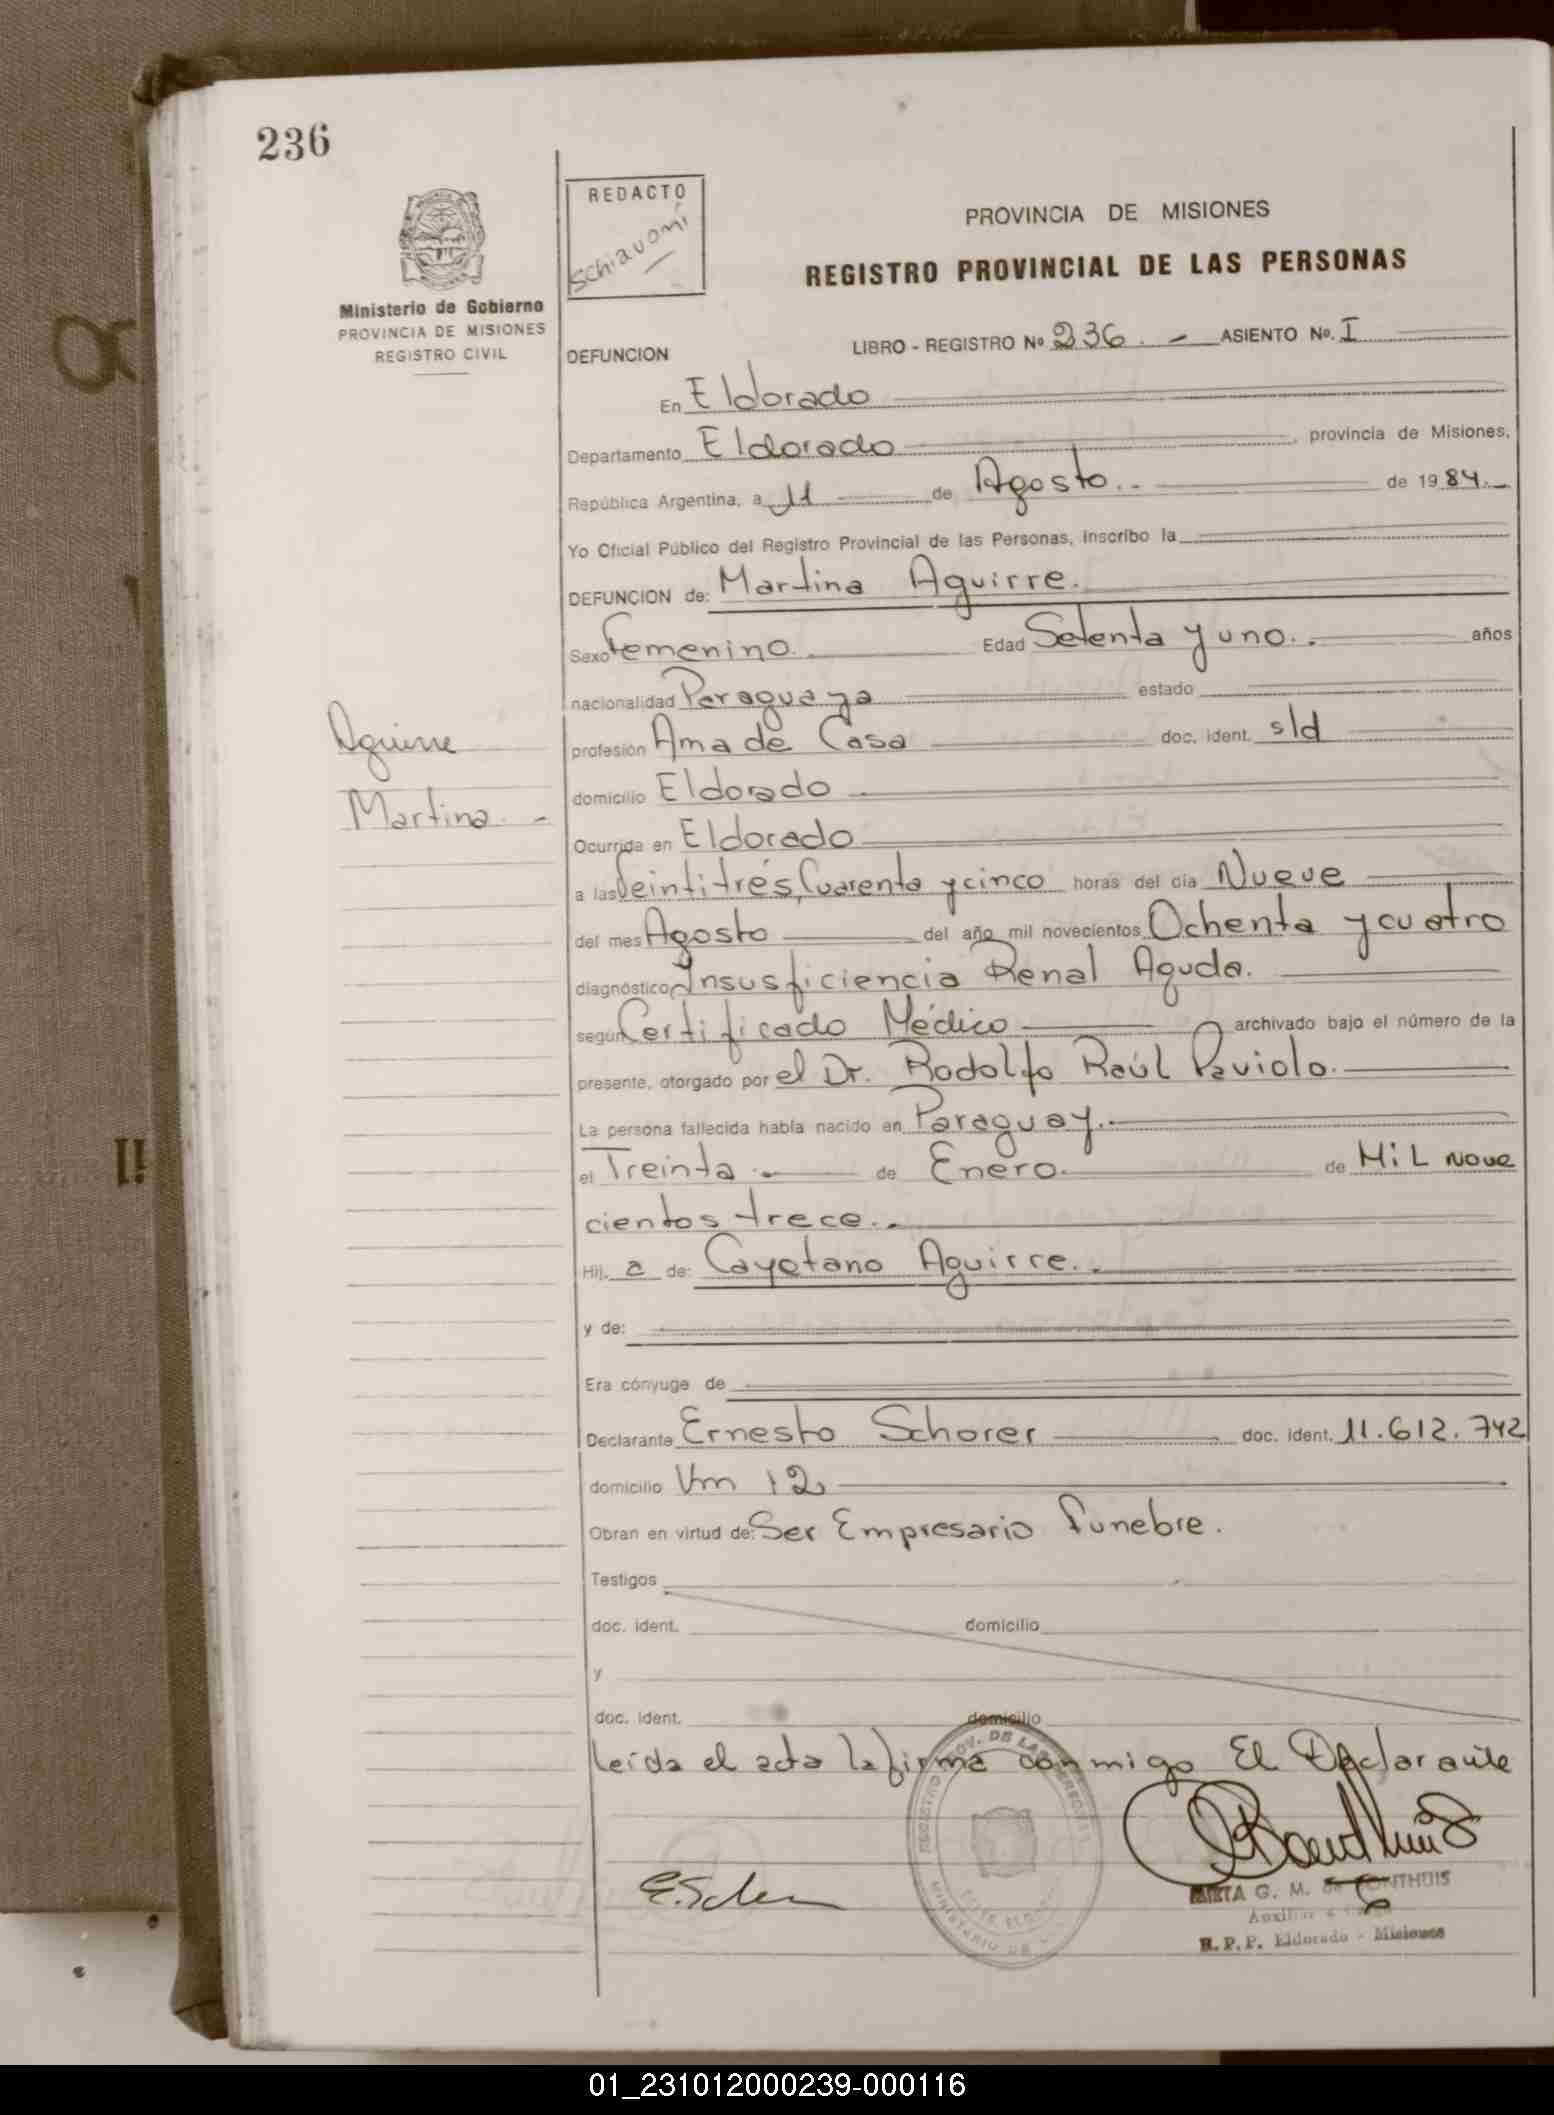 236
REDACTO
Schiavoni
PROVINCIA DE MISIONES
REGISTRO PROVINCIAL DE LAS PERSONAS
Ministerio de Gobierno
PROVINCIA DE MISIONES
REGISTRO CIVIL
DEFUNCION LIBRO - REGISTRO Nº 236. - ASIENTO Nº. I
En Eldorado
Departamento Eldorado , provincia de Misiones,
República Argentina, a 11 de Agosto.. de 1984.-
Yo Oficial Público del Registro Provincial de las Personas, inscribo la
DEFUNCION de: Martina Aguirre.
Sexo Femenino. Edad Setenta y uno.. años
nacionalidad Paraguaya estado
Aguirre
Martina. -
profesión Ama de Casa doc. ident. s/d
domicilio Eldorado
Ocurrida en Eldorado
a las Veintitrés, Cuarenta y cinco horas del día Nueve
del mes Agosto del año mil novecientos Ochenta y cuatro
diagnóstico Insusficiencia Renal Aguda.
según Certificado Médico archivado bajo el número de la
presente, otorgado por el Dr. Rodolfo Raúl Paviolo.
La persona fallecida había nacido en Paraguay.
el Treinta.- de Enero. de Mil Nove
cientos trece..
Hij. a de: Cayetano Aguirre..
y de:
Era cónyuge de
Declarante Ernesto Schorer doc. ident. 11.612.742
domicilio Km 12
Obran en virtud de: Ser Empresario funebre.
Testigos
doc. ident. domicilio
y
doc. ident. domicilio
Leída el acta la firma conmigo El Declarante
REGISTRO PROV. DE LAS PERSONAS
MINISTERIO DE
G. M. de
R.P.P. Eldorado - Misiones
01_231012000239-000116